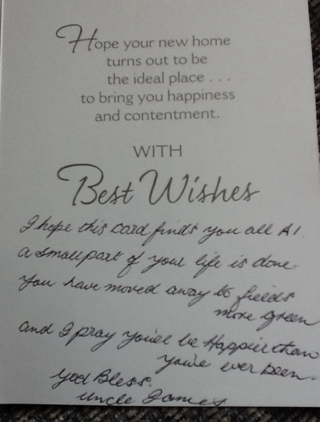 Hope your new home
turns out to be
the ideal place . . .
to bring you happiness
and contentment.
WITH
Best Wishes
I hope this card finds you all A1.
a small part of your life is done
You have moved away to fields
more green
and I pray you'll be Happier than
you've ever been.
God Bless.
Uncle James